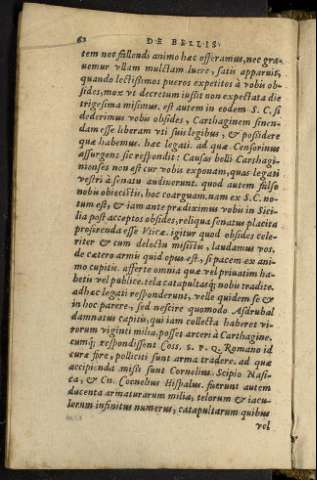 62 DE BELLIS
tem nec fallendi animo hæc offeramus, nec gra=
uemur vllam mulctam luere, satis apparuit,
quando lectissimos pueros expetitos à vobis ob=
sides, mox vt decretum iussit non expectata die
trigesima misimus. est autem in eodem S. C. si
dederimus vobis obsides, Carthaginem sinen=
dam esse liberam vti suis legibus, & possidere
quæ habemus. hæc legati. ad quæ Censorinus
assurgens sic respondit: Causas belli Carthagi=
nienses non est cur vobis exponam, quas legati
vestri à senatu audiuerunt. quod autem falso
nobis obiecistis, hoc coarguam. nam ex S. C. no=
tum est, & iam ante prædiximus vobis in Sici=
lia post acceptos obsides, reliqua senatus placita
proferenda esse Vticæ. igitur quod obsides cele=
riter & cum delectu misistis, laudamus vos.
de cætero armis quid opus est, si pacem ex ani=
mo cupitis. afferte omnia quæ vel priuatim ha=
betis vel publice. tela catapultasq; nobis tradite.
ad hæc legati responderunt, velle quidem se &
in hoc parere, sed nescire quomodo Asdrubal
damnatus capitis, qui iam collecta haberet vi=
rorum viginti milia, posset arceri à Carthagine.
cumq; respondissent Coss. S. P. Q. Romano id
curæ fore, polliciti sunt arma tradere. ad quæ
accipienda missi sunt Cornelius Scipio Nasi=
ca, & Cn. Cornelius Hispalus. fuerunt autem
ducenta armaturarum milia, telorum & iacu=
lorum infinitus numerus, catapultarum quibus
vel